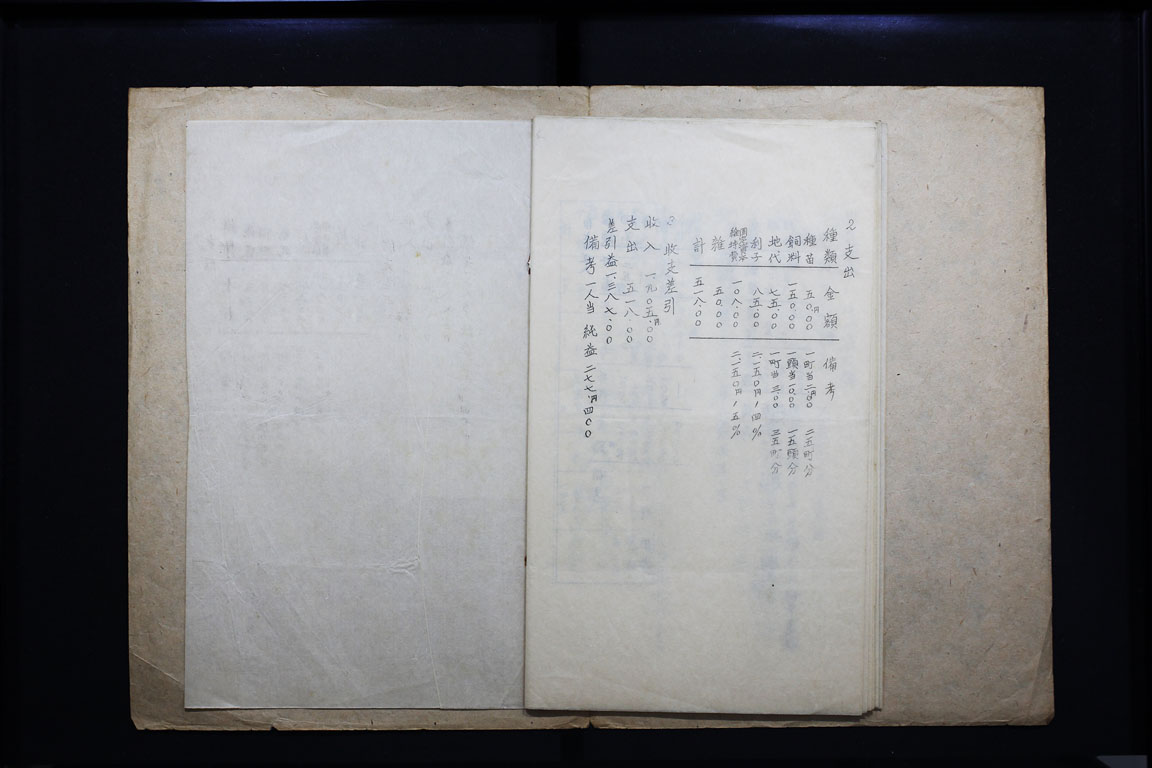 2 支出
種類 金額 備考
種苗 五〇.〇〇円 一町当二.〇〇円 二五町分
飼料 一五〇.〇〇 一頭当一〇.〇〇 一五頭分
地代 七五.〇〇 一町当三.〇〇 二五町分
利子 八五.〇〇 二.一五〇円ノ四%
維持費 一〇八.〇〇 二.一五〇円ノ五%
雑 五〇.〇〇
計 五一八.〇〇
3 収支差引
収入 一.九〇五.〇〇円
支出 五一八.〇〇
差引益 一.三八七.〇〇
備考 一人当 純益 二七七.円四〇〇